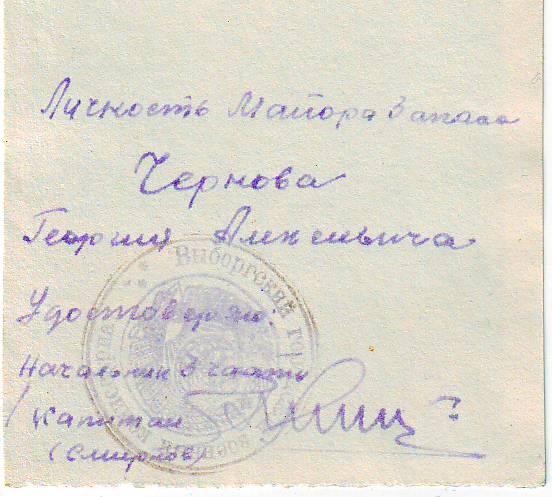 Личность Майора Запаса
Чернова
Георгия Алексеевича
Удостоверяю:
Начальник 3 части
Капитан
(Смирнов)
Выборгский гор
военный к